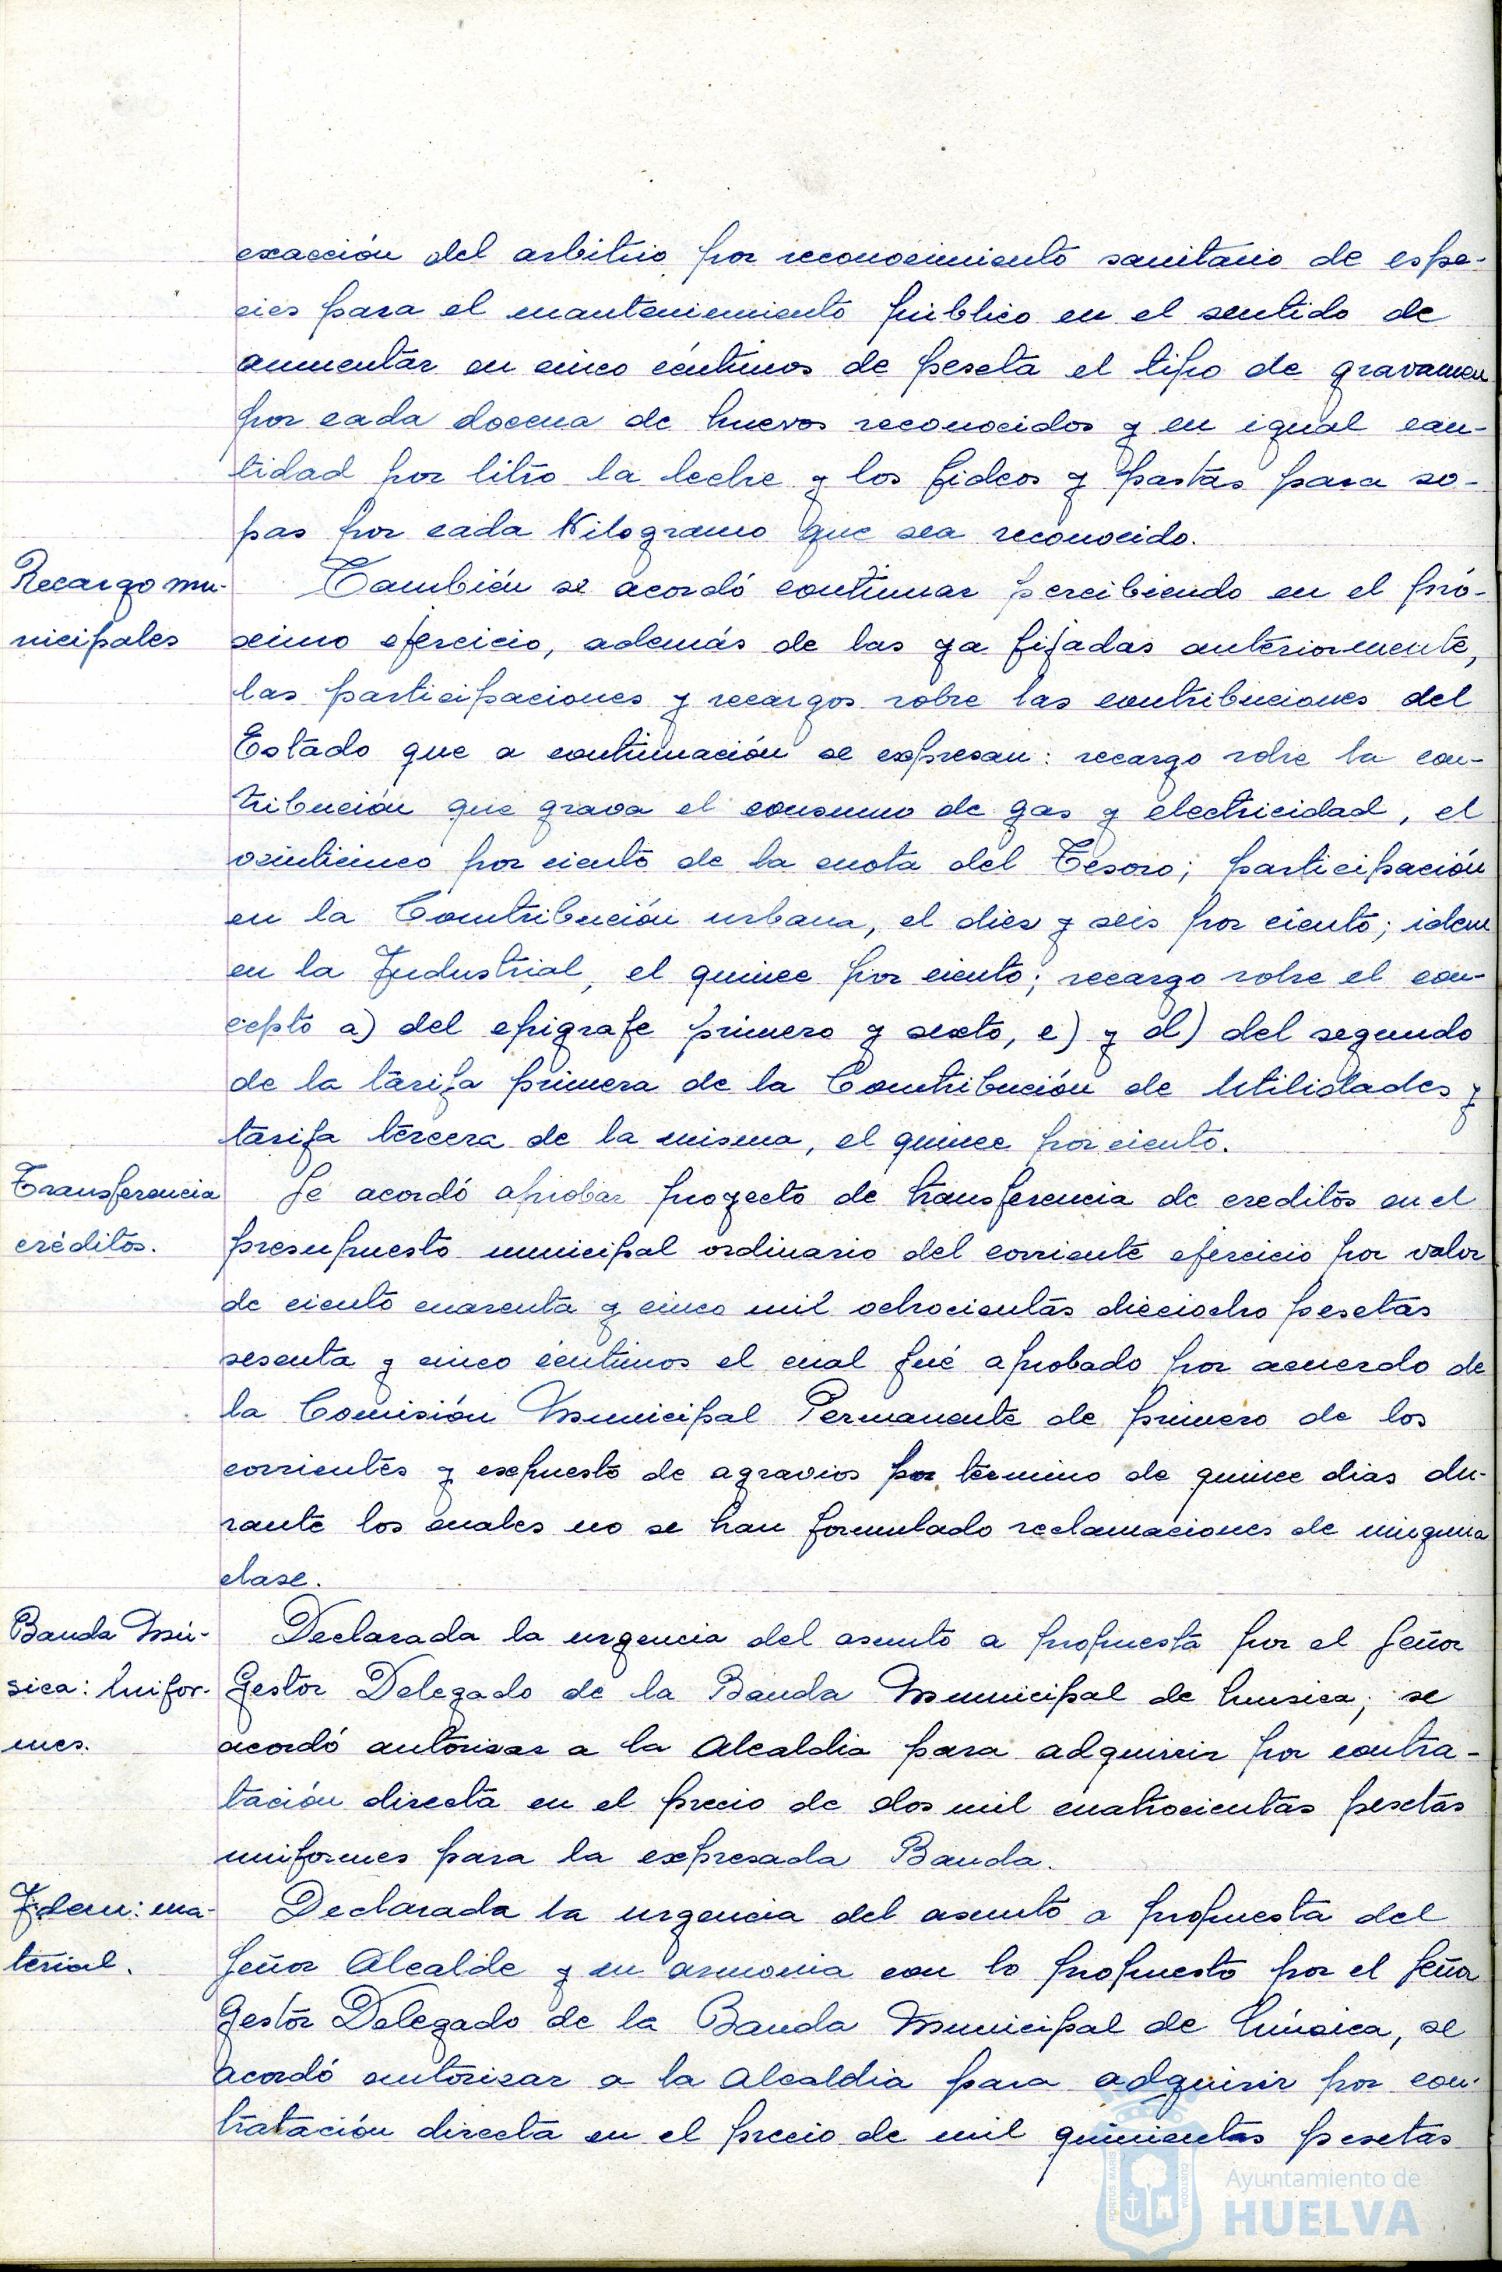 exacción del arbitrio por reconocimiento sanitario de espe-
cies para el mantenimiento público en el sentido de
aumentar en cinco céntimos de peseta el tipo de gravamen
por cada docena de huevos reconocidos y en igual can-
tidad por litro la leche y los fideos y pastas para so-
pas por cada Kilogramo que sea reconocido.
Recargo mu-
nicipales
También se acordó continuar percibiendo en el pró-
ximo ejercicio, además de las ya fijadas anteriormente,
las participaciones y recargos sobre las contribuciones del
Estado que a continuación se expresan: recargo sobre la con-
tribución que grava el consumo de gas y electricidad, el
veinticinco por ciento de la cuota del Tesoro; participación
en la Contribución urbana, el diez y seis por ciento; idem
en la Industrial, el quince por ciento; recargo sobre el con-
cepto a) del epigrafe primero y sexto, c) y d) del segundo
de la tarifa primera de la Contribución de Utilidades y
tarifa tercera de la misma, el quince por ciento.
Transferencia
créditos.
Se acordó aprobar proyecto de transferencia de creditos en el
presupuesto municipal ordinario del corriente ejercicio por valor
de ciento cuarenta y cinco mil ochocientas dieciocho pesetas
sesenta y cinco céntimos el cual fué aprobado por acuerdo de
la Comisión Municipal Permanente de primero de los
corrientes y expuesto de agravios por termino de quince dias du-
rante los cuales no se han formulado reclamaciones de ninguna
clase.
Banda Mú-
sica: Unifor-
mes.
Declarada la urgencia del asunto a propuesta por el Señor
Gestor Delegado de la Banda Municipal de Musica, se
acordó autorizar a la Alcaldia para adquirir por contra-
tación directa en el precio de dos mil cuatrocientas pesetas
uniformes para la expresada Banda.
Idem: ma-
terial.
Declarada la urgencia del asunto a propuesta del
Señor Alcalde y en armonia con lo propuesto por el Señor
Gestor Delegado de la Banda Municipal de Música, se
acordó autorizar a la Alcaldia para adquirir por con-
tratación directa en el precio de mil quinientas pesetas
Ayuntamiento de
HUELVA